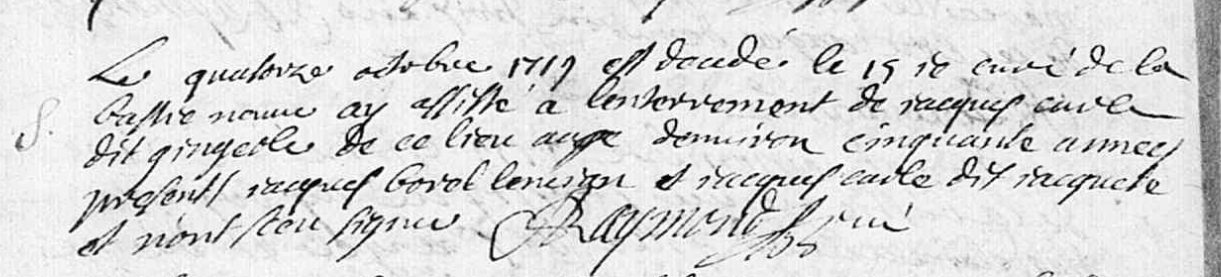 Le quatorze octobre 1719 est decedé le 15 je curé de la
bastie neuve ay assisté a lenterrement de jacques eurle
dit gingerle de ce lieu agé denviron cinquante annees
presents jacques borel lencien et jacques eurle dit jacquete
et n'ont sceu signer Raymond curé
S.